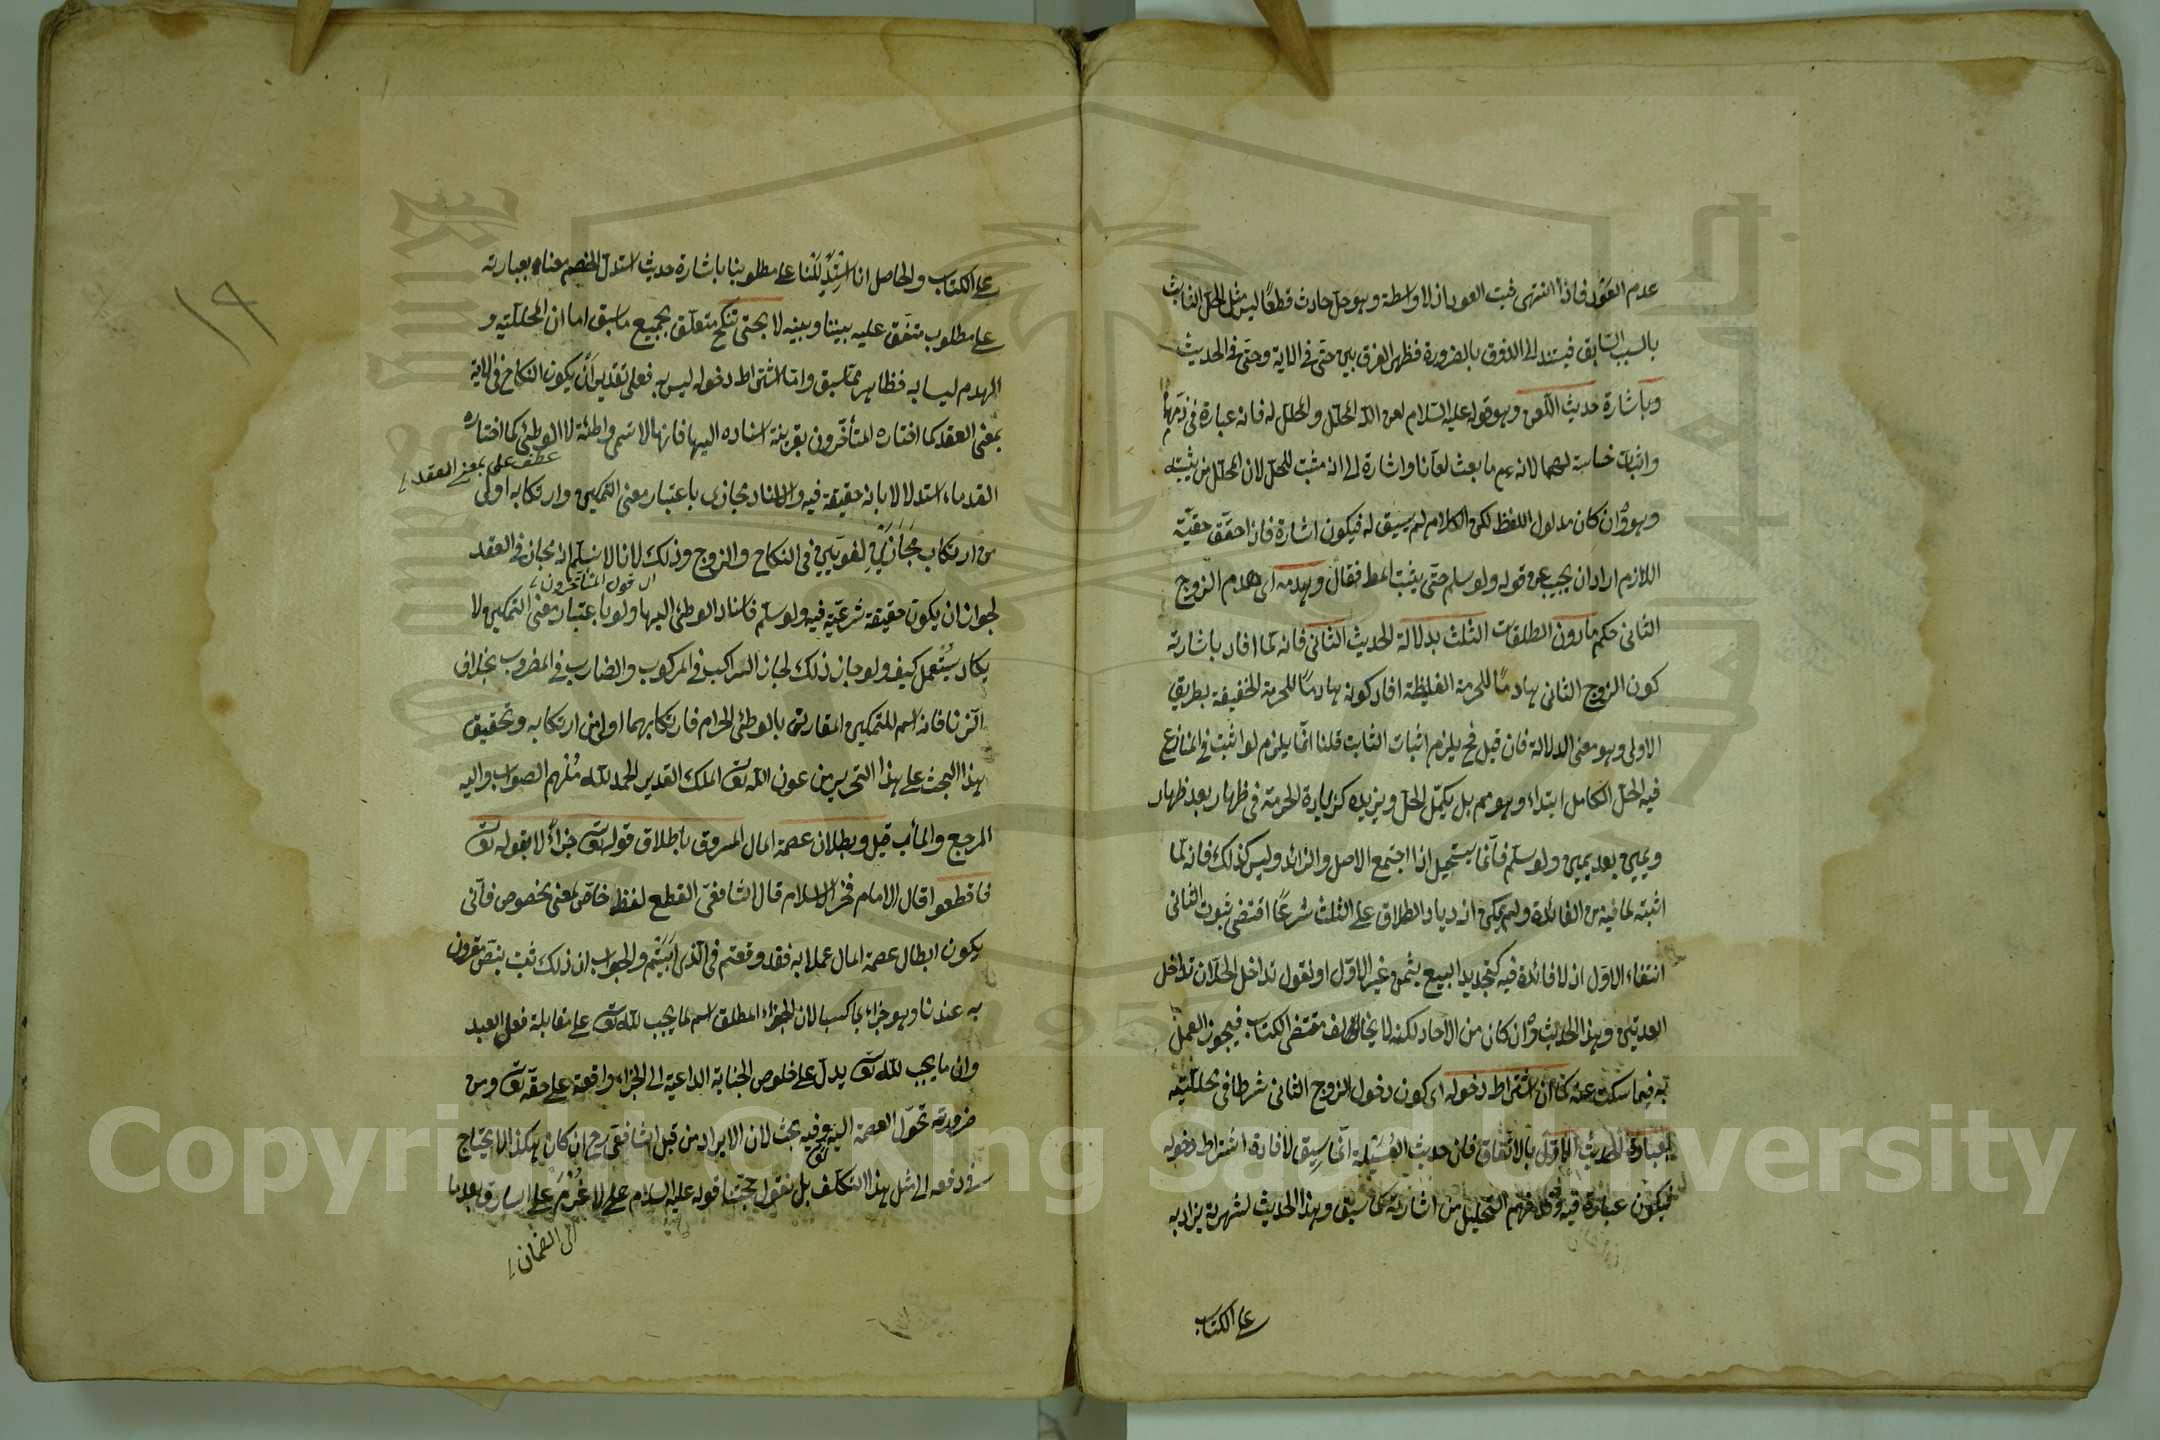 عدم العود فاذا انتهى ثبت العود اذ لا واسطة وهو حل حادث قطعا ليس مثل الحل الثابت
بالسبب السابق فيستند الى الذوق بالضرورة فظهر الفرق بين حتى في الاية وحتى في الحديث
وباشارة حديث اللعن وهو قوله عليه السلام لعن الله المحلل والمحلل له فانه عبارة في ذمهما
واثبات خساسة لهما لانه عم ما بعث لعانا واشارة الى انه مثبت للحل لان المحلل من يثبته
وهو وان كان مدلول اللفظ لكن الكلام لم يسق له فيكون اشارة فاذا حقق حقية
اللازم اراد ان يجيب عن قوله ولو سلم حتى يثبت المط فقال ويهدمه اى هدم الزوج
الثانى حكم مادون الطلقات الثلث بدلالة الحديث الثانى فانه لما افاد باشارته
كون الزوج الثانى هادما للحرمة الغليظة افاد كونه هادما للحرمة الخفيفة بطريق
الاولى وهو معنى الدلالة فان قيل فح يلزم اثبات الثابت قلنا انما يلزم لو اثبت في المنازع
فيه الحل الكامل ابتداء وهو مم بل يكمل الحل ويزيده كزيادة الحرمة في ظهار بعد ظهار
ويمين بعد يمين ولو سلم فانما يستحيل اذا اجتمع الاصل والزائد وليس كذلك فانه لما
اثبته لما فيه من الفائدة ولم يمكن ازدياد الطلاق على الثلث شرعا اقتضى ثبوت الثانى
انتفاء الاول اذ لا فائدة فيه كتجديد البيع بثمن غير الاول او نقول تداخل الحلان تداخل
العدتين وهذا الحديث وان كان من الاحاد لكنه لما يخالف مقتضى الكتاب فيجوز العمل
به فيما سكت عنه كما ان اشتراط دخوله اى كون دخول الزوج الثانى شرطا في محلليته
بعبارة الحديث الاول بالاتفاق فان حديث العسيلة انما سيق لافادة اشتراط دخوله
فيكون عبارة فيه وقد فهم التحليل من اشارته كما سبق وهذا الحديث لشهرته يزاد به
على الكتاب
١٩
على الكتاب والحاصل انا استدللنا على مطلوبنا باشارة حديث استدل الخصم معناه بعبارته
على مطلوب متفق عليه بيننا وبينه لا بحتى تنكح متعلق بجميع ماسبق اما ان المحللية و
الهدم ليسا به فظاهر مما سبق واما اشتراط دخوله ليس به فعلى تقدير ان يكون النكاح في الاية
بمعنى العقد كما اختاره المتأخرون بقرينة اسناده اليها فانها لا تسمى واطئة لا الوطئ كما اختاره
عطف على بمعنى العقد
القدماء استدلالا بانه حقيقة فيه والاسناد مجازى باعتبار معنى التمكين وارتكابه اولى
من ارتكاب مجازين لغويين في النكاح والزوج وذلك لانا لا نسلم انه مجاز في العقد
اى قول المتأخرون
لجواز ان يكون حقيقة شرعية فيه ولو سلم فاسناد الوطئ اليها ولو باعتبار معنى التمكين لا
يكاد يستعمل كيف ولو جاز ذلك لجاز الراكب في المركوب والضارب في المضروب بخلاف
الزنا فانه اسم للتمكين المقارن بالوطئ الحرام فارتكابهما اولى من ارتكابه وتحقيق
هذا البحث على هذا التحرير من عون الله تع الملك القدير الحمد لله ملهم الصواب واليه
المرجع والمأب قيل وبطلان عصمة المال المسروق باطلاق قوله تع جزاء لا بقوله تع
فاقطعوا قال الامام فخر الاسلام قال الشافعى القطع لفظ خاص لمعنى مخصوص فانى
يكون ابطال عصمة المال عملا به فقد وقعتم في الذى ابيتم والجواب ان ذلك ثبت بنص مقرون
به عندنا وهو جزاء بما كسبا لان الجزاء المطلق اسم لما يجب لله تع على مقابلة فعل العبد
وان ما يجب لله تع يدل على خلوص الجناية الداعية الى الجزاء واقعة على حقه تع ومن
ضرورته تحول العصمة اليه وفيه بحث لان الايراد من قبل الشافعى رح ان كان هكذا لا يحتاج
في دفعه الى مثل هذا التكلف بل نقول حجتنا قوله عليه السلام على لا غرم على السارق بعد ما
اى الضمان
Copyright © King Saud University
1957